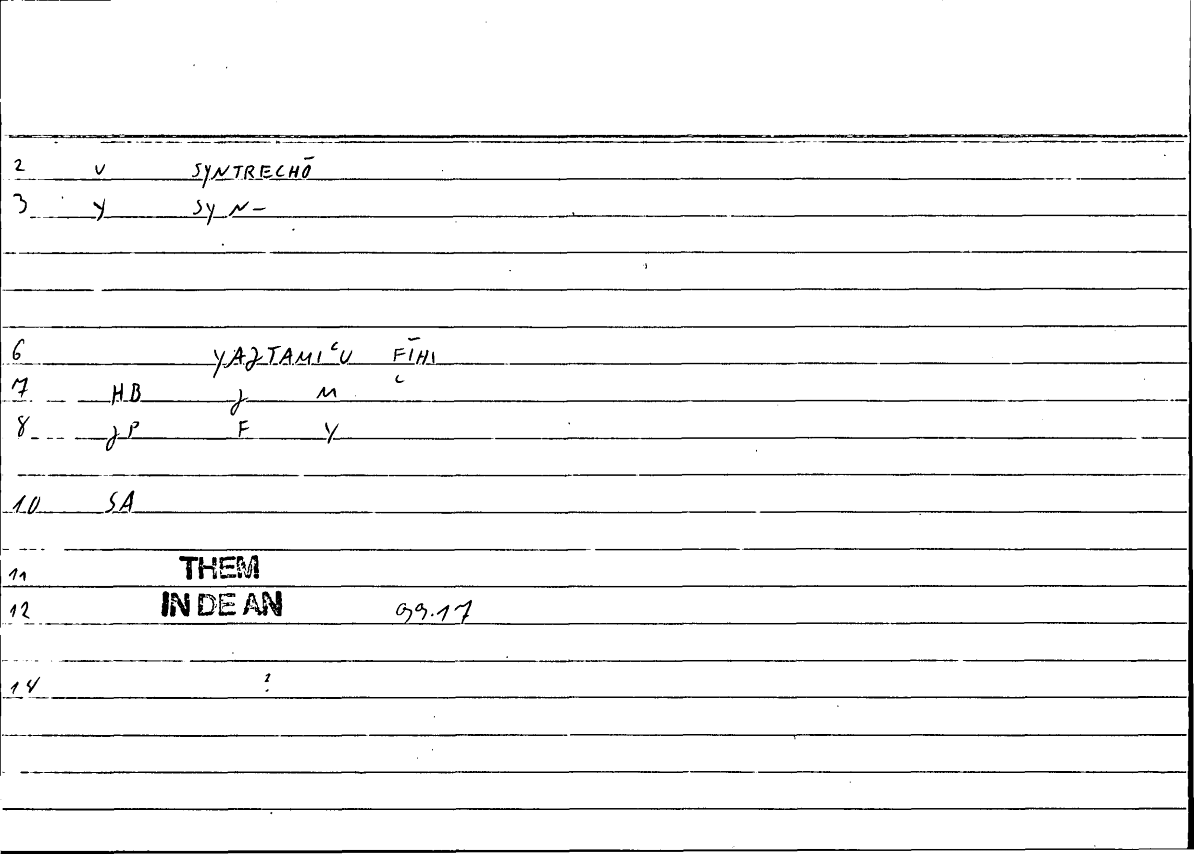 2 V SYNTRECHŌ
3 Y SYN-
6 YAJTAMIʿU FĪHI
7 HB J M ʿ
8 JP F Y
10 SA
11 THEM
12 IN DE AN 99.17
14 ?